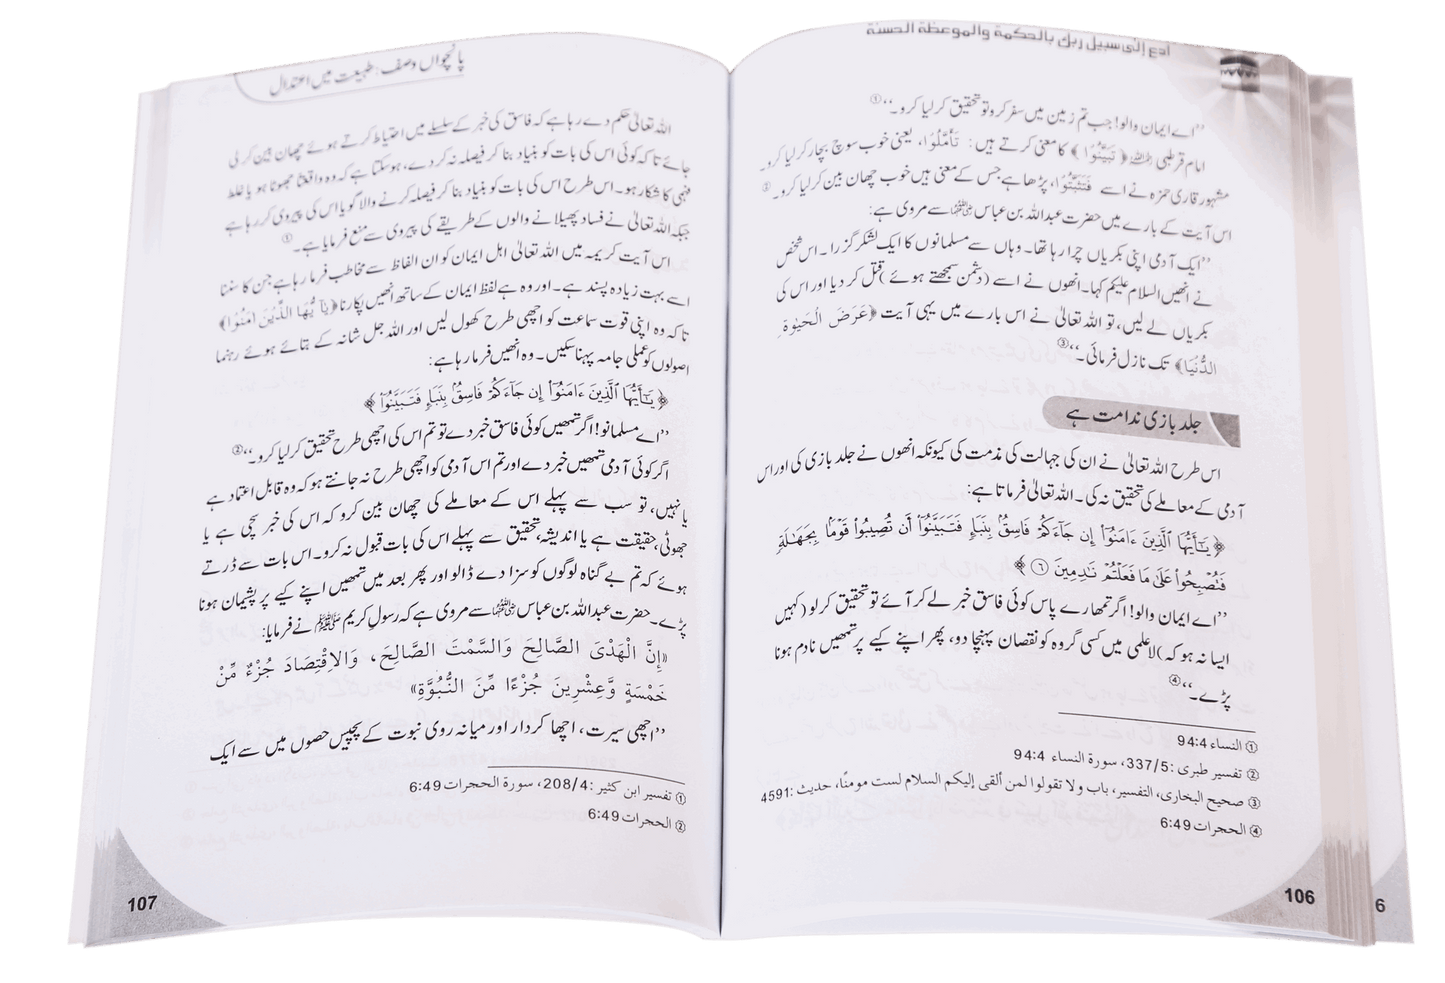 ادع إلى سبيل ربك بالحكمة والموعظة الحسنة
’’اے ایمان والو! جب تم زمین میں سفر کرو تو تحقیق کر لیا کرو۔‘‘①
امام قرطبی رحمہ اللہ ﴿تَبَيَّنُوْا﴾ کا معنی کرتے ہیں: تَأَمَّلُوْا، یعنی خوب سوچ بچار کر لیا کرو۔
مشہور قاری حمزہ نے اسے فَتَثَبَّتُوْا، پڑھا ہے جس کے معنی ہیں خوب چھان بین کر لیا کرو۔②
اس آیت کے بارے میں حضرت عبداللہ بن عباس رضی اللہ عنہما سے مروی ہے:
’’ایک آدمی اپنی بکریاں چرا رہا تھا۔ وہاں سے مسلمانوں کا ایک لشکر گزرا۔ اس شخص
نے انھیں السلام علیکم کہا۔ انھوں نے اسے (دشمن سمجھتے ہوئے) قتل کر دیا اور اس کی
بکریاں لے لیں، تو اللہ تعالیٰ نے اس بارے میں یہی آیت ﴿عَرَضَ الْحَيٰوةِ
الدُّنْيَا﴾ تک نازل فرمائی۔‘‘③
جلد بازی ندامت ہے
اس طرح اللہ تعالیٰ نے ان کی جہالت کی مذمت کی کیونکہ انھوں نے جلد بازی کی اور اس
آدمی کے معاملے کی تحقیق نہ کی۔ اللہ تعالیٰ فرماتا ہے:
﴿يَٰٓأَيُّهَا ٱلَّذِينَ ءَامَنُوٓا۟ إِن جَآءَكُمْ فَاسِقٌۢ بِنَبَإٍ فَتَبَيَّنُوٓا۟ أَن تُصِيبُوا۟ قَوْمًۢا بِجَهَٰلَةٍ
فَتُصْبِحُوا۟ عَلَىٰ مَا فَعَلْتُمْ نَٰدِمِينَ ٦﴾
’’اے ایمان والو! اگر تمھارے پاس کوئی فاسق خبر لے کر آئے تو تحقیق کر لو (کہیں
ایسا نہ ہو کہ) لاعلمی میں کسی گروہ کو نقصان پہنچا دو، پھر اپنے کیے پر تمھیں نادم ہونا
پڑے۔‘‘④
① النساء 94:4
② تفسیر طبری: 337/5، سورة النساء 94:4
③ صحيح البخاري، التفسير، باب ولا تقولوا لمن ألقى إليكم السلام لست مومنًا، حديث: 4591
④ الحجرات 6:49
106
6
پانچواں وصف: طبیعت میں اعتدال
اللہ تعالیٰ حکم دے رہا ہے کہ فاسق کی خبر کے سلسلے میں احتیاط کرتے ہوئے چھان بین کر لی
جائے تاکہ کوئی اس کی بات کو بنیاد بنا کر فیصلہ نہ کر دے، ہوسکتا ہے کہ وہ واقعتًا جھوٹا ہو یا غلط
فہمی کا شکار ہو۔ اس طرح اس کی بات کو بنیاد بنا کر فیصلہ کرنے والا گویا اس کی پیروی کر رہا ہے
جبکہ اللہ تعالیٰ نے فساد پھیلانے والوں کے طریقے کی پیروی سے منع فرمایا ہے۔①
اس آیت کریمہ میں اللہ تعالیٰ اہل ایمان کو ان الفاظ سے مخاطب فرما رہا ہے جن کا سننا
اسے بہت زیادہ پسند ہے۔ اور وہ ہے لفظ ایمان کے ساتھ انھیں پکارنا ﴿يٰٓاَيُّهَا الَّذِيْنَ اٰمَنُوْا﴾
تاکہ وہ اپنی قوت سماعت کو اچھی طرح کھول لیں اور اللہ جل شانہ کے بتائے ہوئے رہنما
اصولوں کو عملی جامہ پہنا سکیں۔ وہ انھیں فرما رہا ہے:
﴿يَٰٓأَيُّهَا ٱلَّذِينَ ءَامَنُوٓا۟ إِن جَآءَكُمْ فَاسِقٌۢ بِنَبَإٍ فَتَبَيَّنُوٓا۟﴾
’’اے مسلمانو! اگر تمھیں کوئی فاسق خبر دے تو تم اس کی اچھی طرح تحقیق کر لیا کرو۔‘‘②
اگر کوئی آدمی تمھیں خبر دے اور تم اس آدمی کو اچھی طرح نہ جانتے ہو کہ وہ قابل اعتماد ہے
یا نہیں، تو سب سے پہلے اس کے معاملے کی چھان بین کرو کہ اس کی خبر سچی ہے یا
جھوٹی، حقیقت ہے یا اندیشہ، تحقیق سے پہلے اس کی بات قبول نہ کرو۔ اس بات سے ڈرتے
ہوئے کہ تم بے گناہ لوگوں کو سزا دے ڈالو اور پھر بعد میں تمھیں اپنے کیے پر پشیمان ہونا
پڑے۔ حضرت عبداللہ بن عباس رضی اللہ عنہما سے مروی ہے کہ رسول کریم ﷺ نے فرمایا:
«إِنَّ الْهَدْىَ الصَّالِحَ وَالسَّمْتَ الصَّالِحَ، وَالاِقْتِصَادَ جُزْءٌ مِّنْ
خَمْسَةٍ وَّعِشْرِينَ جُزْءًا مِّنَ النُّبُوَّةِ»
’’اچھی سیرت، اچھا کردار اور میانہ روی نبوت کے پچیس حصوں میں سے ایک
① تفسیر ابن کثیر: 208/4، سورة الحجرات 6:49
② الحجرات 6:49
107